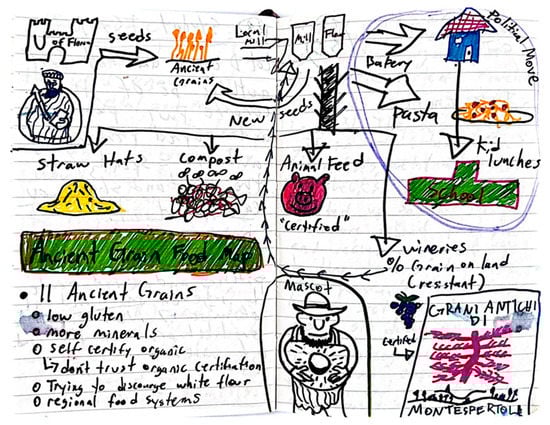 of Flore
seeds
Ancient
Grains
Local
Mill
Mill
Flour
Bakery
Political Move
New seeds
Pasta
Straw Hats
compost
Animal Feed
"certified"
Kid
lunches
School
wineries
% Grain on land
Ancient Grain Food Map
Mascot
• 11 Ancient Grains
low gluten
more minerals
self certify organic
don't trust organic certifination
Trying to discourge white flour
regional food systems
Certifed
GRANI ANTICHI
DI
MONTESPERTOLI